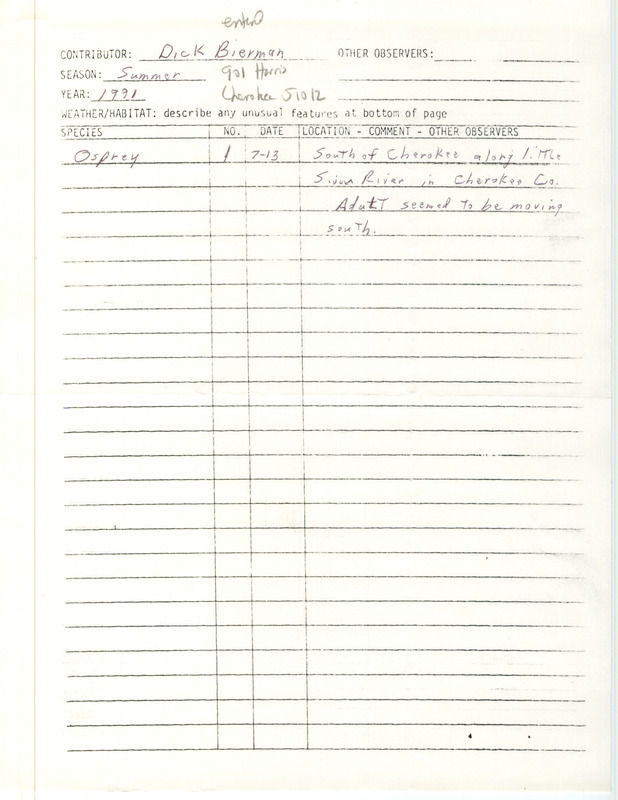 enterd
CONTRIBUTOR: Dick Bierman OTHER OBSERVERS:
SEASON: Summer 901 Harris
YEAR: 1991 Cherokee 51012
WEATHER/HABITAT: describe any unusual features at bottom of page
SPECIES NO. DATE LOCATION - COMMENT - OTHER OBSERVERS
Osprey 1 7-13 South of Cherokee along little
Sioux River in Cherokee Co.
Adult seemed to be moving
south.